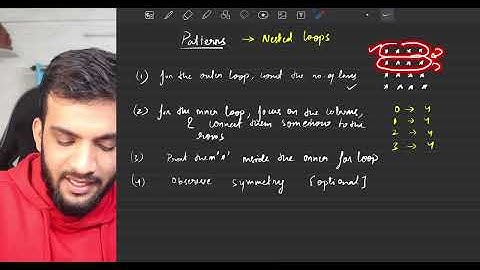 Patterns → Nested loops
(1) for the outer loop, count the no. of lines ✓
(2) for the inner loop, focus on the columns,
& connect them somehow to the
rows
(3) Print them '*' inside the inner for loop
(4) Observe symmetry [optional]
* * * *
* * * *
* * * *
* * * *
0 → 4
1 → 4
2 → 4
3 → 4